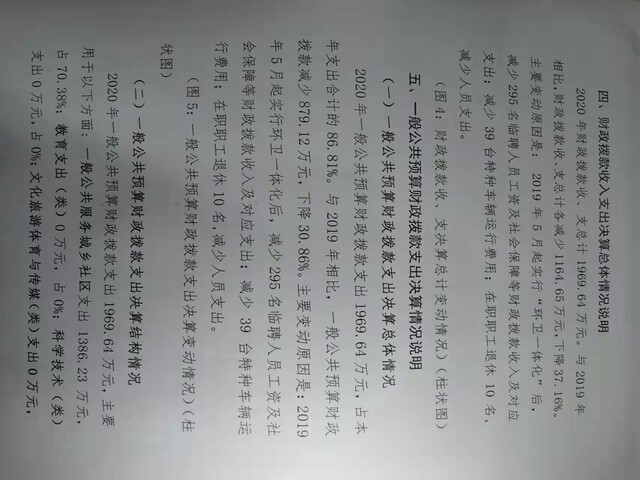 四、财政拨款收入支出决算总体情况说明
2020 年财政拨款收、支总计 1969.64 万元。与 2019 年
相比,财政拨款收、支总计各减少 1164.65 万元,下降 37.16%。
主要变动原因是:2019 年 5 月起实行“环卫一体化”后,
减少 295 名临聘人员工资及社会保障等财政拨款收入及对应
支出;减少 39 台特种车辆运行费用;在职职工退休 10 名,
减少人员支出。
(图 4:财政拨款收、支决算总计变动情况)(柱状图)
五、一般公共预算财政拨款支出决算情况说明
(一)一般公共预算财政拨款支出决算总体情况
2020 年一般公共预算财政拨款支出 1969.64 万元,占本
年支出合计的 86.81%。与 2019 年相比,一般公共预算财政
拨款减少 879.12 万元,下降 30.86%。主要变动原因是:2019
年 5 月起实行环卫一体化后,减少 295 名临聘人员工资及社
会保障等财政拨款收入及对应支出;减少 39 台特种车辆运
行费用;在职职工退休 10 名,减少人员支出。
(图 5:一般公共预算财政拨款支出决算变动情况)(柱
状图)
(二)一般公共预算财政拨款支出决算结构情况
2020 年一般公共预算财政拨款支出 1969.64 万元,主要
用于以下方面:一般公共服务城乡社区支出 1386.23 万元,
占 70.38%;教育支出(类)0 万元,占 0%;科学技术(类)
支出 0 万元,占 0%;文化旅游体育与传媒(类)支出 0 万元,